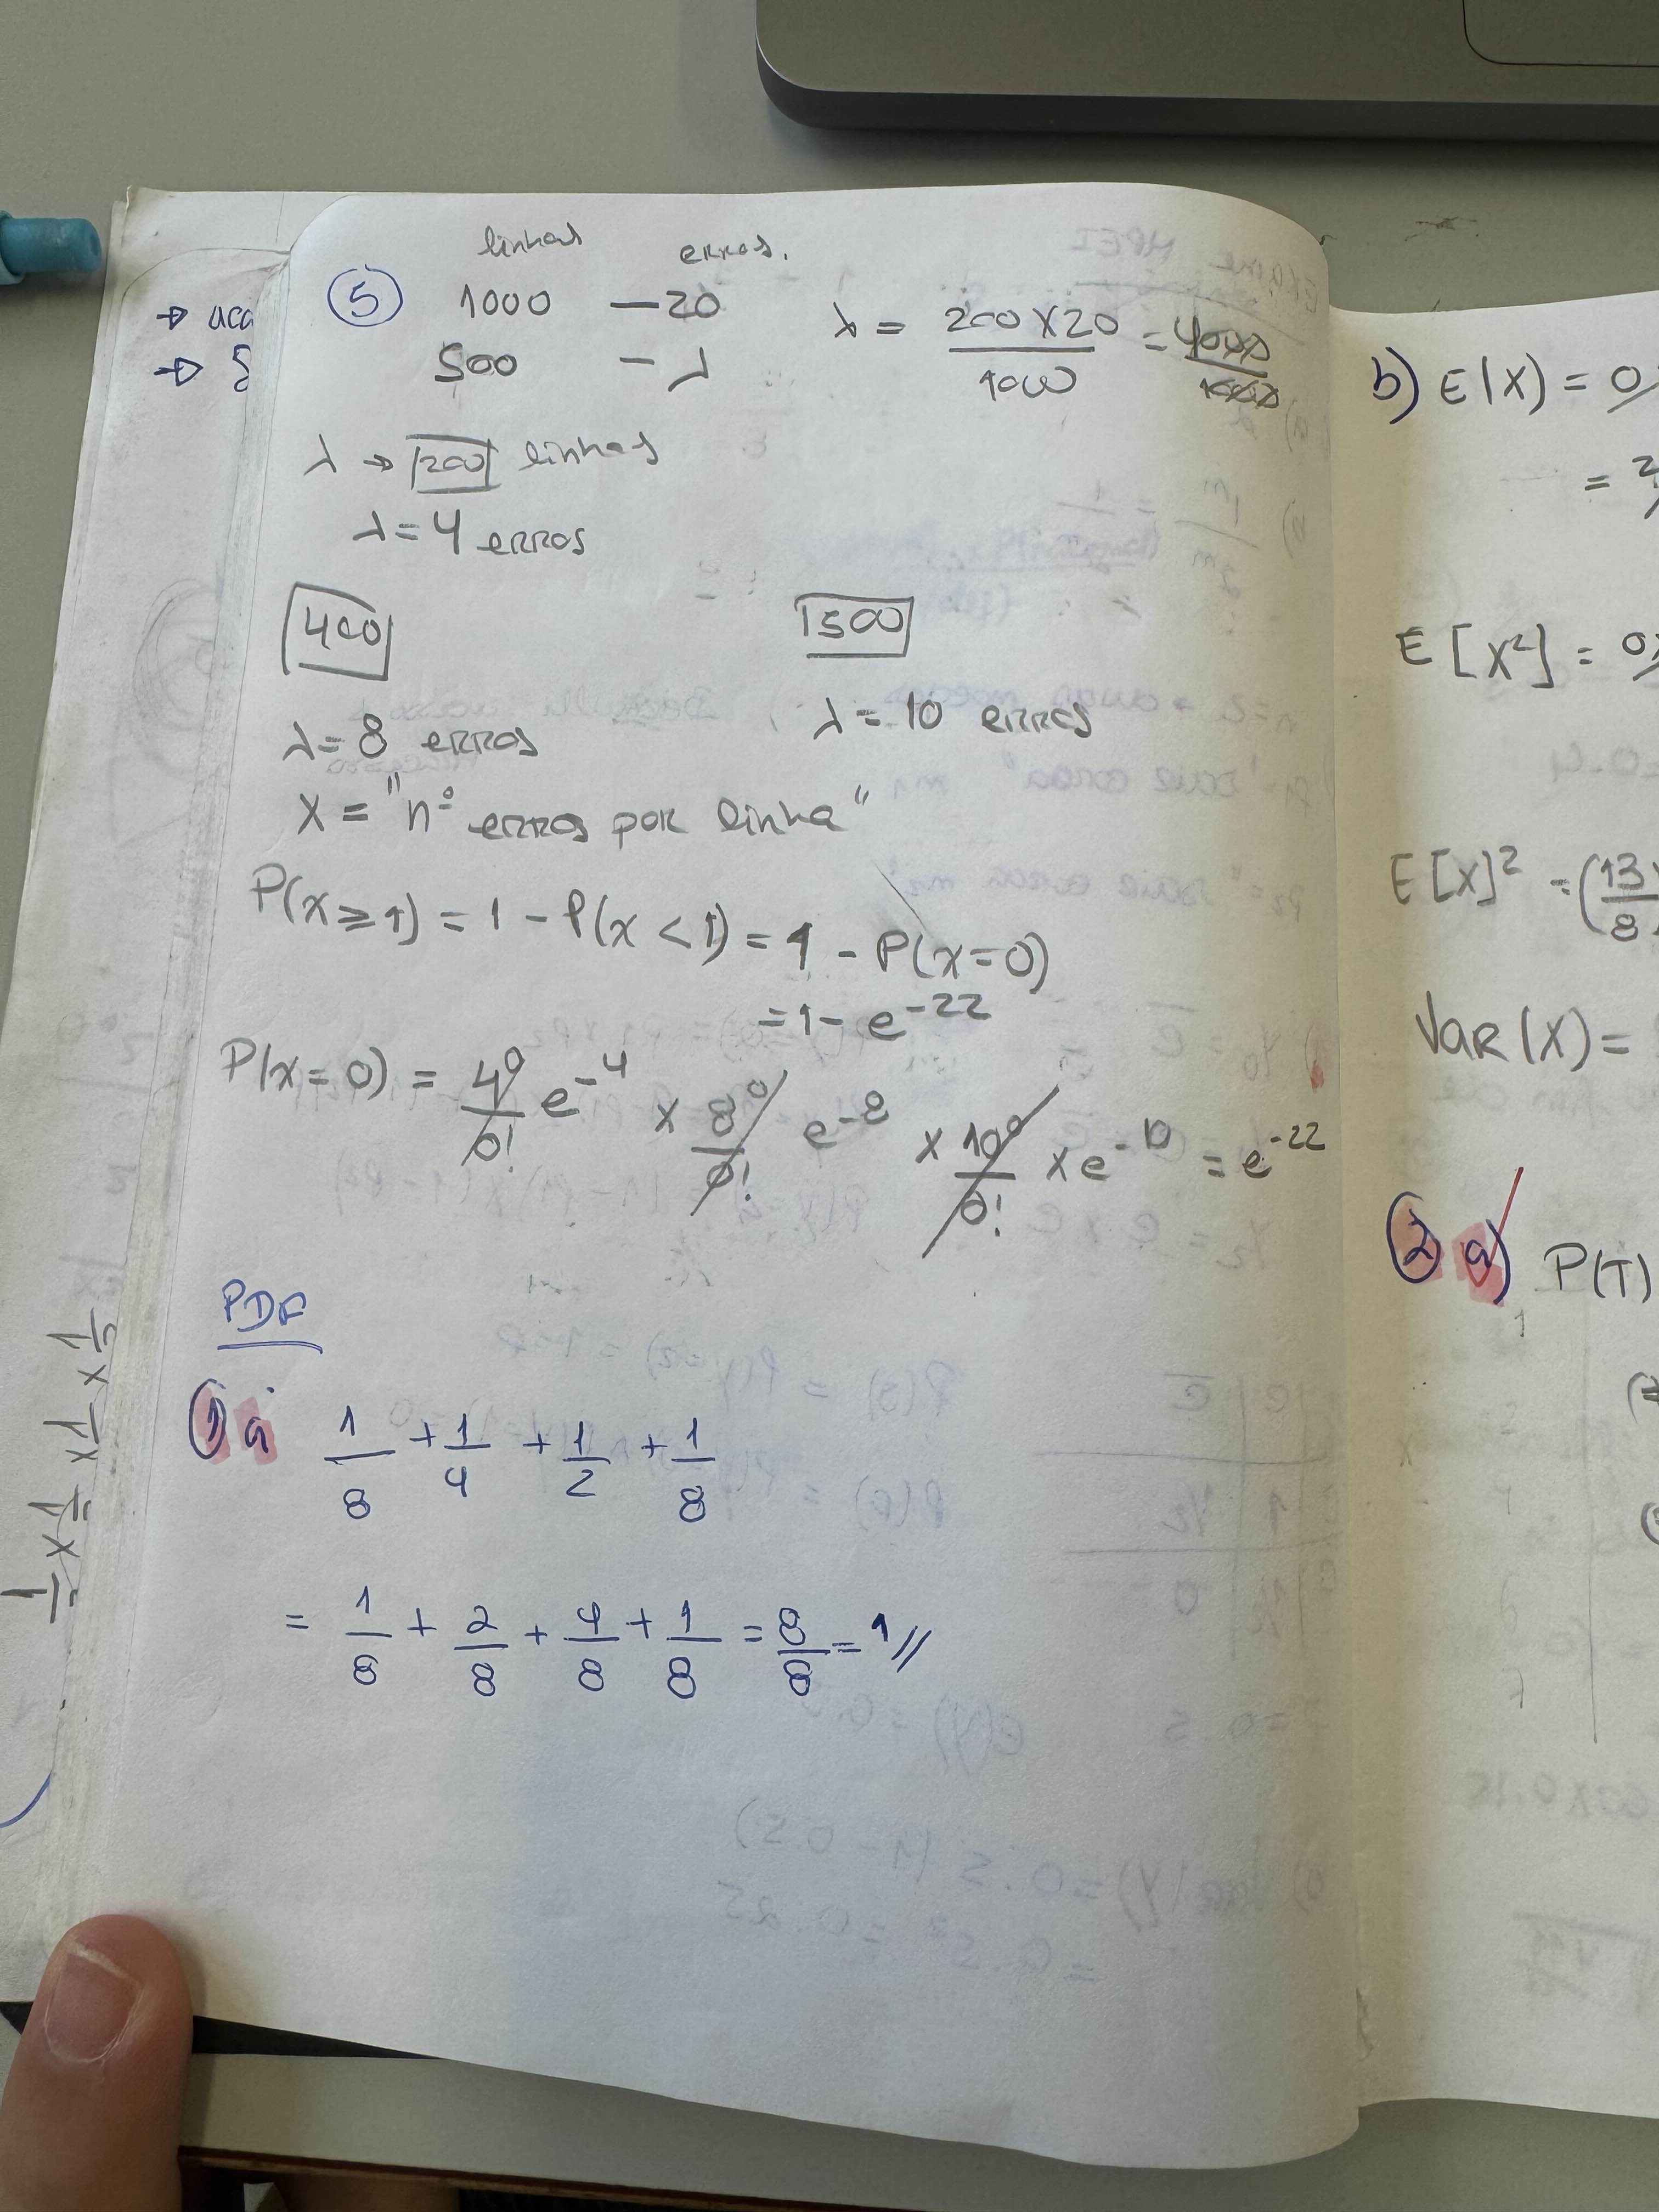 → uca
→
linhas erros.
⑤ 1000 — 20
500 — λ
λ = 200 X 20 / 1000 = 4000 / 1000
λ → 200 linhas
λ = 4 erros
400
500
λ = 8 erros
λ = 10 erros
X = "nº erros por linha"
P(x ≥ 1) = 1 - P(x < 1) = 1 - P(x = 0)
= 1 - e^-22
P(x = 0) = 4^0/0! e^-4 x 8^0/0! e^-8 x 10^0/0! x e^-10 = e^-22
PDF
① a 1/8 + 1/4 + 1/2 + 1/8
= 1/8 + 2/8 + 4/8 + 1/8 = 8/8 = 1 //
b) E(X) = 0
= 2
E[X²] = 0
E[X]² = (13/8
Var(X) =
② a) P(T)